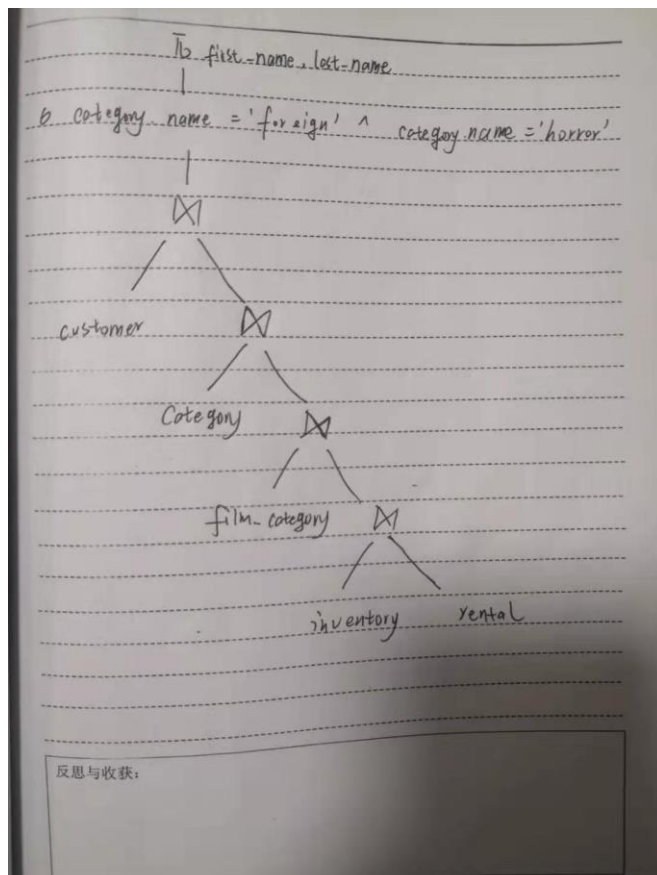 π first_name, last_name
σ category name = 'foreign' ^ category name = 'horror'
⋈
customer ⋈
Category ⋈
film_category ⋈
inventory rental
反思与收获: